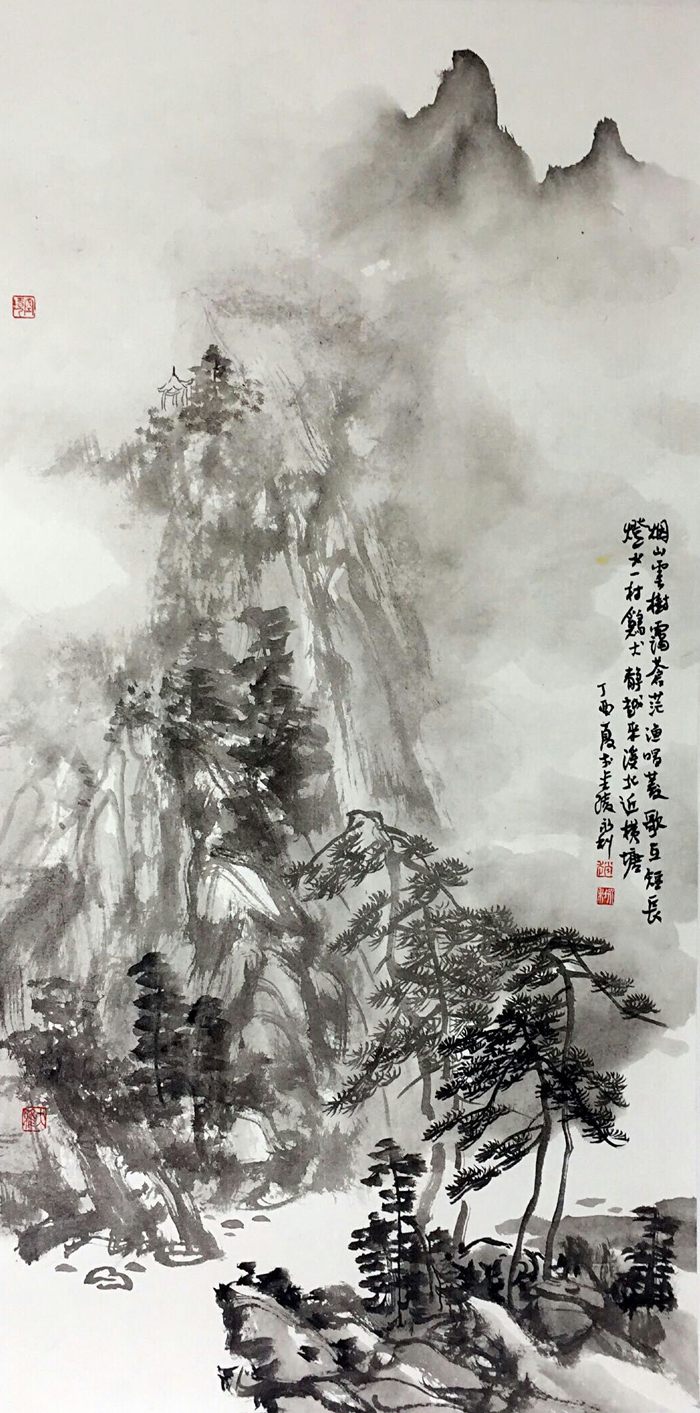 烟山雲樹靄蒼茫漁唱菱歌互短長
燈火一村鷄犬靜越來溪北近橫塘
丁酉夏於金陵